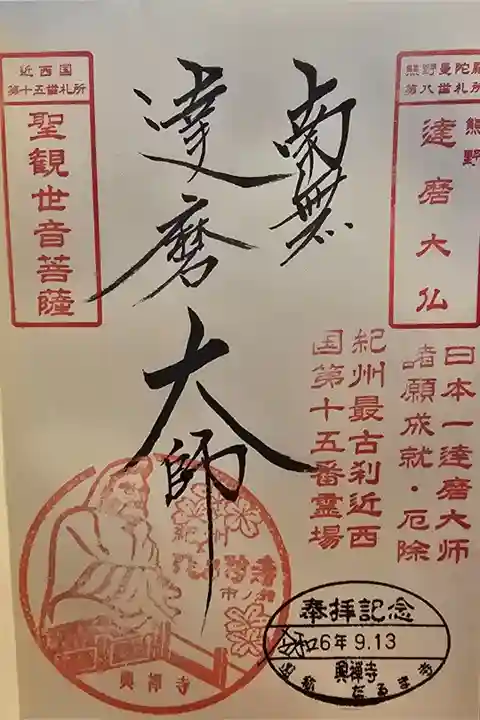 熊野曼陀羅
第八番札所
熊野
達磨大仏
南無
達磨大師
近西国
第十五番札所
聖観世音菩薩
日本一達磨大师
諸願成就・厄除
紀州最古刹近西
国第十五番霊場
紀州
市ノ瀬
興禅寺
奉拝記念
令和6年9.13
興禅寺
だるま寺